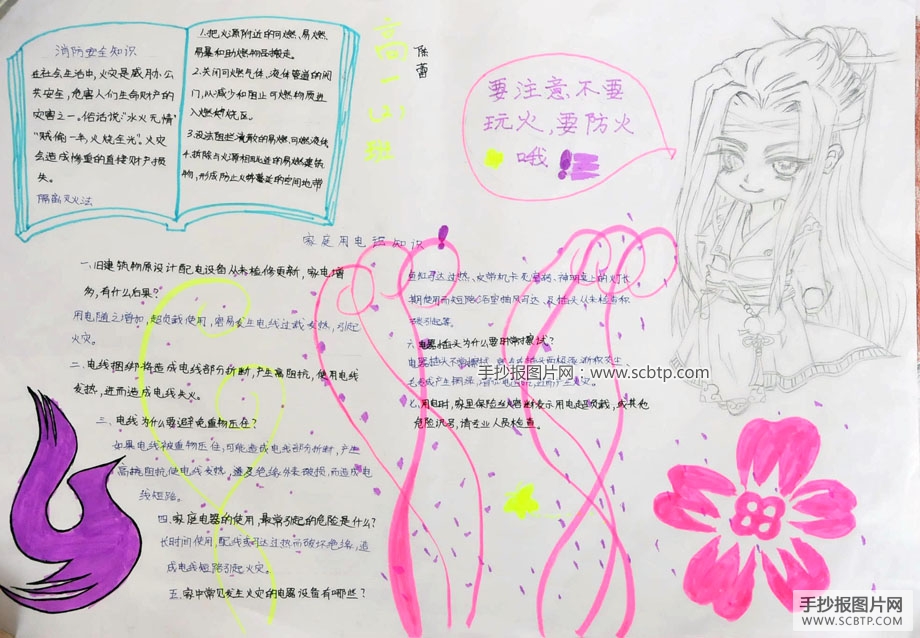 消防安全知识
在社会生活中,火灾是威胁公
共安全,危害人们生命财产的
灾害之一。俗话说"水火无情"
"贼偷一半,火烧全光"。火灾
会造成惨重的直接财产损
失。
隔离灭火法
1.把火源附近的可燃、易燃、
易暴和助燃物品搬走。
2.关闭可燃气体、液体管道的阀
门,以减少和阻止可燃物质进
入燃烧区。
3.设法阻拦流散的易燃可燃液体
4.拆除与火源相毗连的易燃建筑
物,形成防止火势蔓延的空间地带
高一
班
陈蕾
要注意不要
玩火,要防火
哦!
家庭用电器知识!
一、旧建筑物原设计配电设备从未检修更新,家电增
多,有什么后果?
用电随之增加,超负载使用,容易发生电线过载发热,引起
火灾。
二、电线捆绑将造成电线部分折断,产生高阻抗,使用电线
发热,进而造成电线失火。
三、电线为什么要避免重物压住?
如果电线被重物压住,可能造成电线部分折断,产生
高接阻抗使电线发热,遍及绝缘外来破损,而造成电
线短路。
四、家庭电器的使用,最常引起的危险是什么?
长时间使用,配线或可达过热而破坏绝缘,造
成电线短路引起火灾。
五、家中常见发生火灾的电器设备有哪些?
过热、
期使用而短路
引起等。
六、电器插头为什么要时常擦拭?
电器插头不常擦拭
火灾。
七、用电时,家里保险丝熔断表示用电超负载,或其他
危险讯号,请专业人员检查。
手抄报图片网:www.scbtp.com
手抄报图片网
WWW.SCBTP.COM